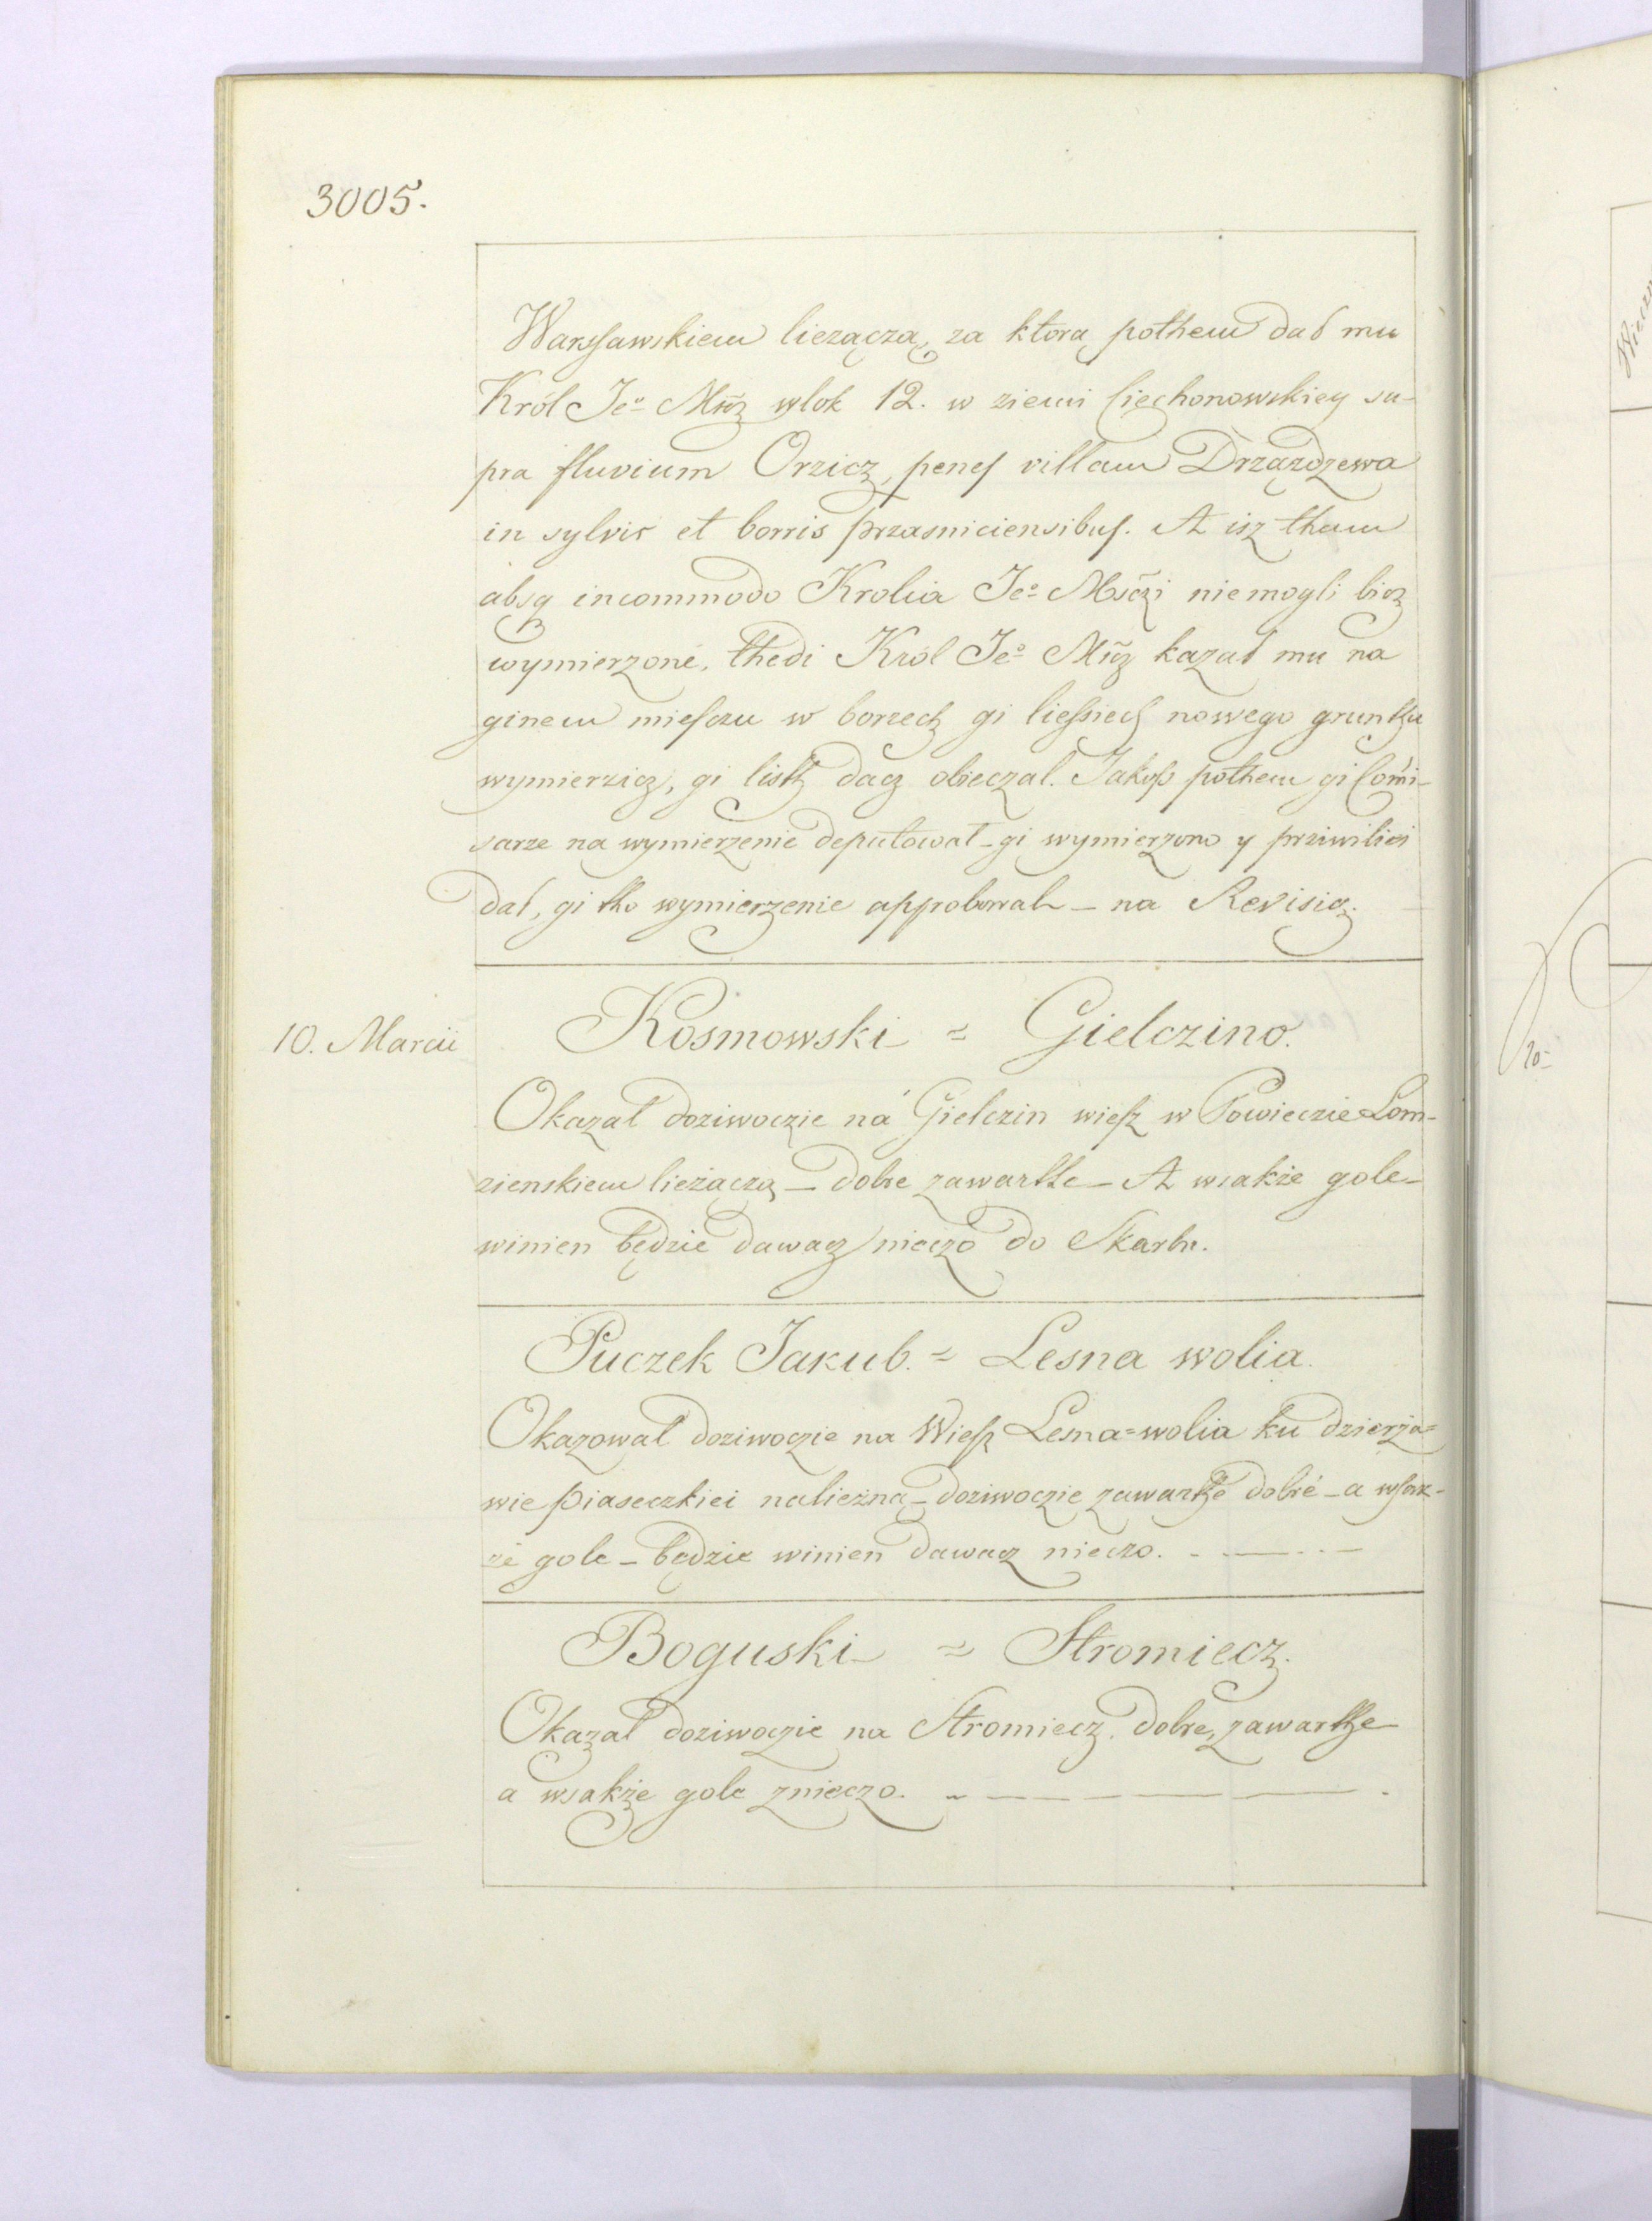 3005.
Warssawskiem liezącza, za ktorą pothem dał mu
Król Jeº Mścz wlok 12. w ziemi Ciechonowskiey su-
pra fluvium Orzicz, penes villam Drzązdzewa
in sylvis et borris przasniciensibus. A isz tham
absq incommodo Krolia Jeº Msczi niemogli bicz
wymierzoné, thedi Król Jeº Mścz kazał mu na
ginem miesczu w borzech gi liessiech nowego grunthu
wymierzicz, gi listh dacz obieczal. Jakosz pothem gi Comi-
sarze na wymierzenie deputował - gi wymierzono y prziwiliei
dał, gi tho wymierzenie approbował - na Revisią.
10. Marcii
Kosmowski = Gielczino.
Okazał doziwoczie ná Gielczin wiesz w Powieczie Lom-
zienskiem lieżączą - dobre zawarthe - A wsakże gole-
winien będzie dawacz nieczo do Skarbu.
Puczek Jakub. = Lesna wolia.
Okazował doziwoczie na Wiesz Lesna=wolia ku dzierża=
wie Piaseczkiei nalieżną - doziwoczie zawarthe dobré - a wsak-
żé gole - będzie winien dawacz nieczo. - — . —
Boguski = Stromiecz.
Okazał doziwoczie na Stromiecz. dobre, zawarthe
a wsakże gole znieczo. - — — — — — .
Wieczn
20-